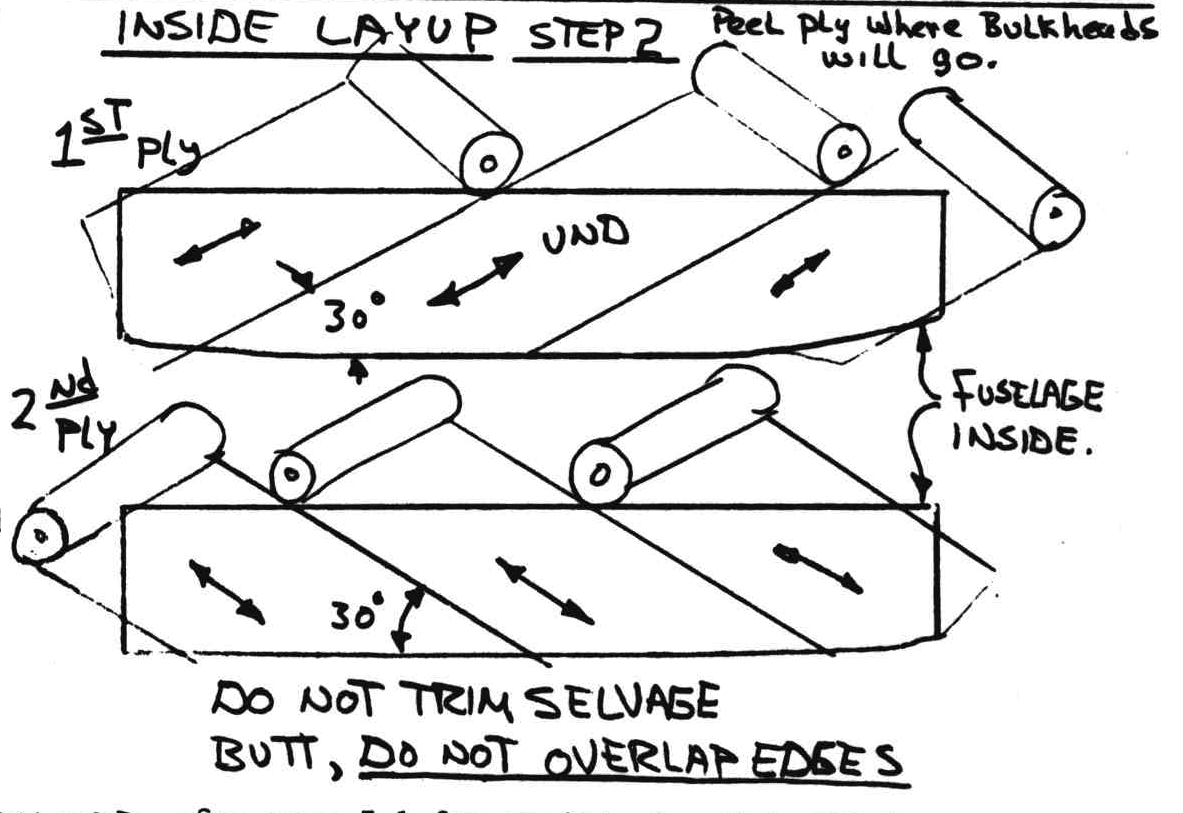 INSIDE LAYUP STEP 2
Peel ply where Bulkheads
will go.
1ST
Ply
UND
30°
2Nd
PLY
FUSELAGE
INSIDE.
30°
DO NOT TRIM SELVAGE
BUTT, DO NOT OVERLAP EDGES